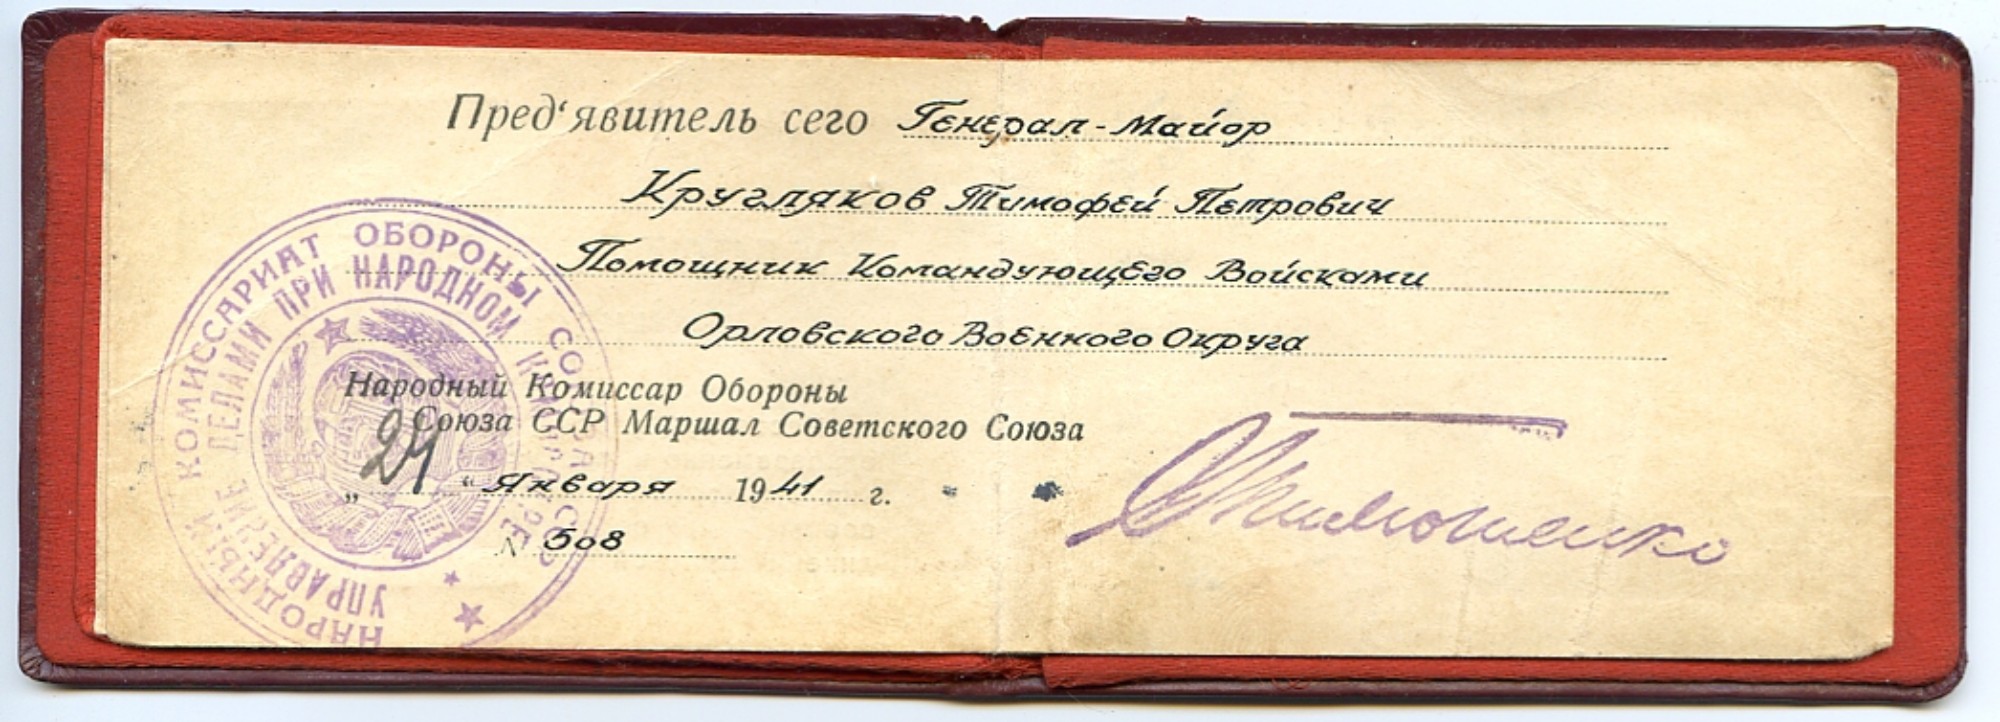 Пред‘явитель сего Генерал-Майор
Кругляков Тимофей Петрович
Помощник Командующего Войсками
Орловского Военного Округа
Народный Комиссар Обороны
Союза ССР Маршал Советского Союза
„24“ Января 1941 г.
С Тимошенко
№ 508
НАРОДНЫЙ КОМИССАРИАТ ОБОРОНЫ СОЮЗА ССР
УПРАВЛЕНИЕ ДЕЛАМИ ПРИ НАРОДНОМ КОМИССАРЕ